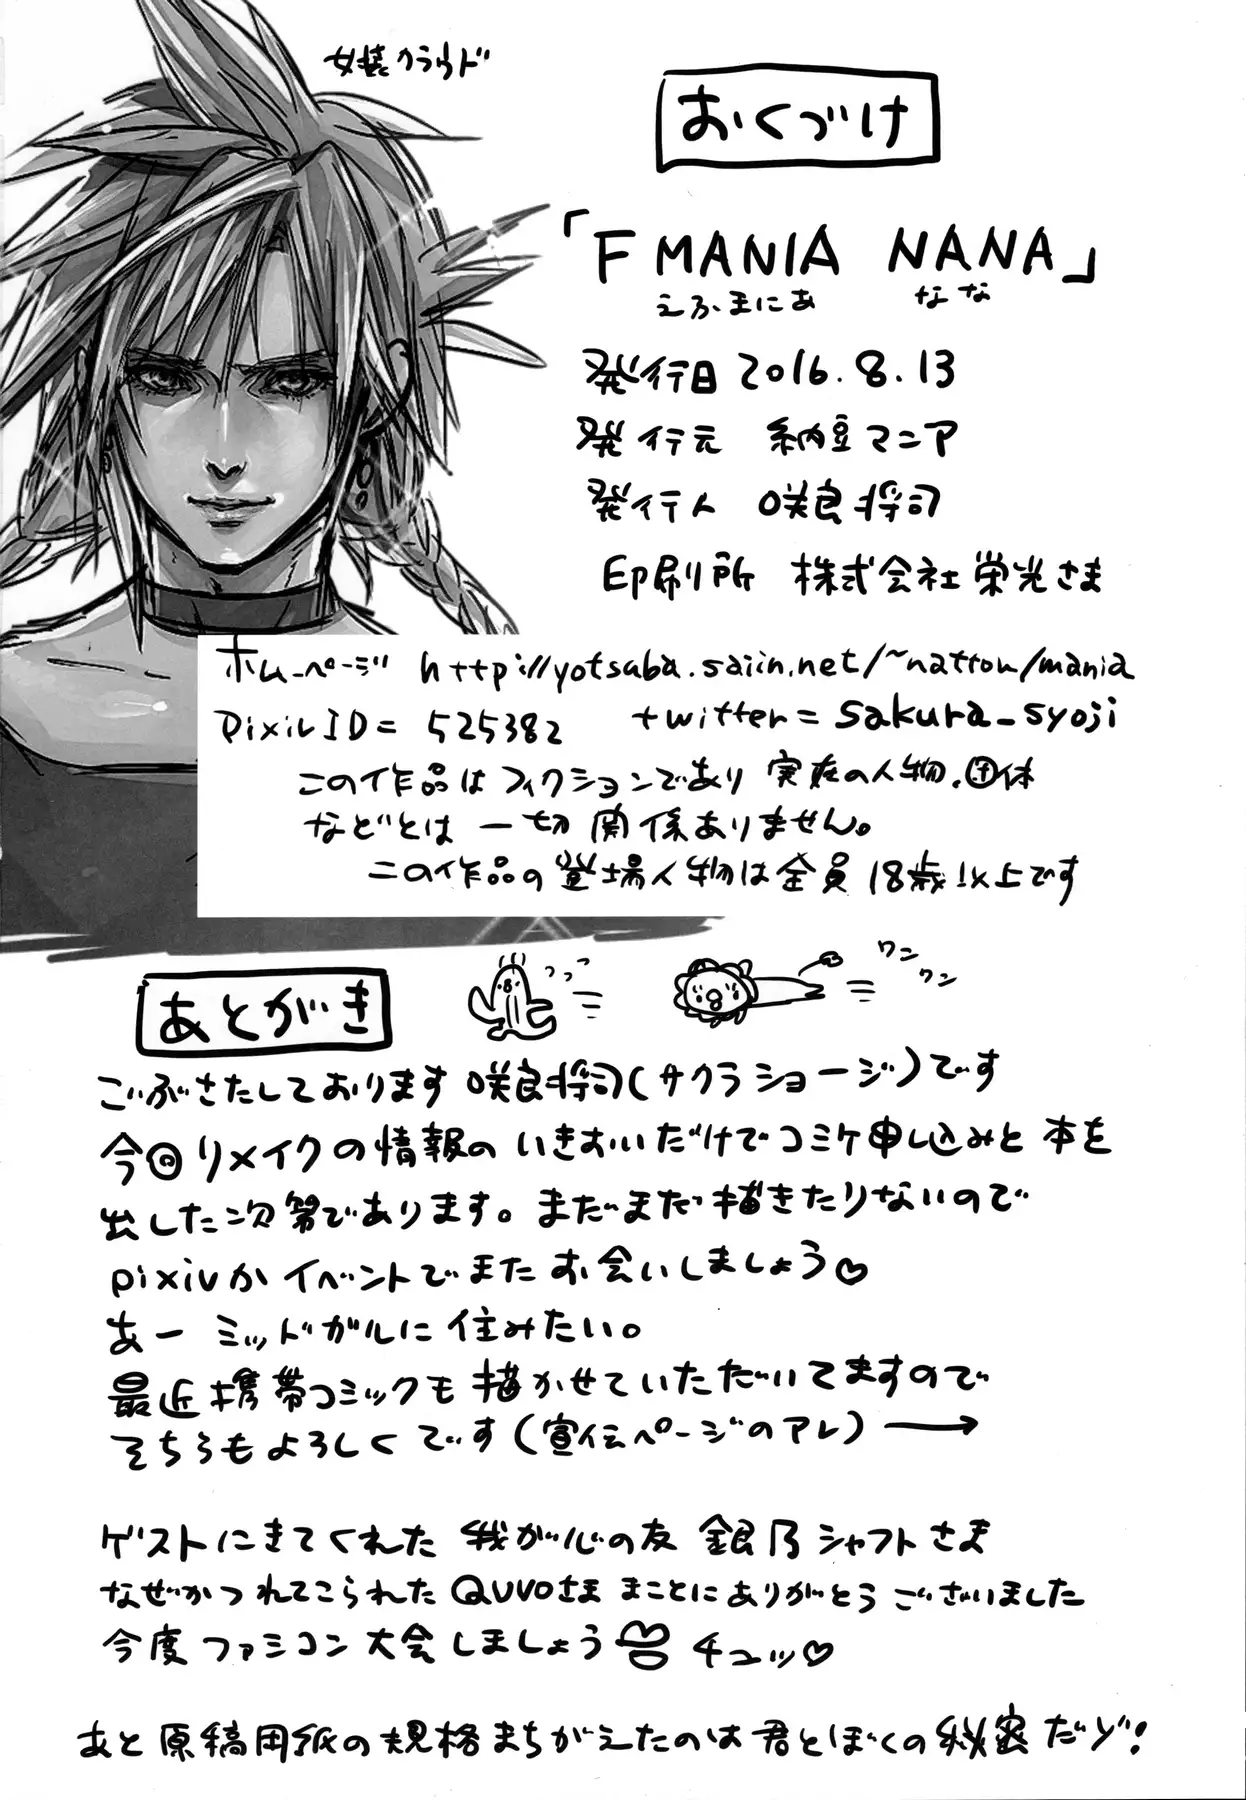 女装クラウド
おくづけ
「F MANIA NANA」
えふまにあ なな
発行日 2016.8.13
発行元 納豆マニア
発行人 咲良将司
印刷所 株式会社栄光さま
ホームページ http://yotsuba.saiin.net/~nattou/mania
pixiv ID= 525382 twitter= sakura_syoji
この作品はフィクションであり 実在の人物、団体
などとは 一切 関係ありません。
この作品の登場人物は全員18歳以上です
あとがき
つっっ
ワン
ワン
ごぶさたしております 咲良将司(サクラショージ)です
今回リメイクの情報の いきおいだけでコミケ申し込みと 本を
出した次第であります。まだまだ描きたりないので
pixivかイベントでまた お会いしましょう♡
あー ミッドガルに 住みたい。
最近携帯コミックも描かせていただいてますので
そちらもよろしくです(宣伝ページのアレ)→
ゲストにきてくれた 我が心の友 銀乃シャフトさま
なぜかつれてこられたQUVOさま まことにありがとうございました
今度ファミコン大会しましょう チュッ♡
あと原稿用紙の規格まちがえたのは君とぼくの秘密だゾ!